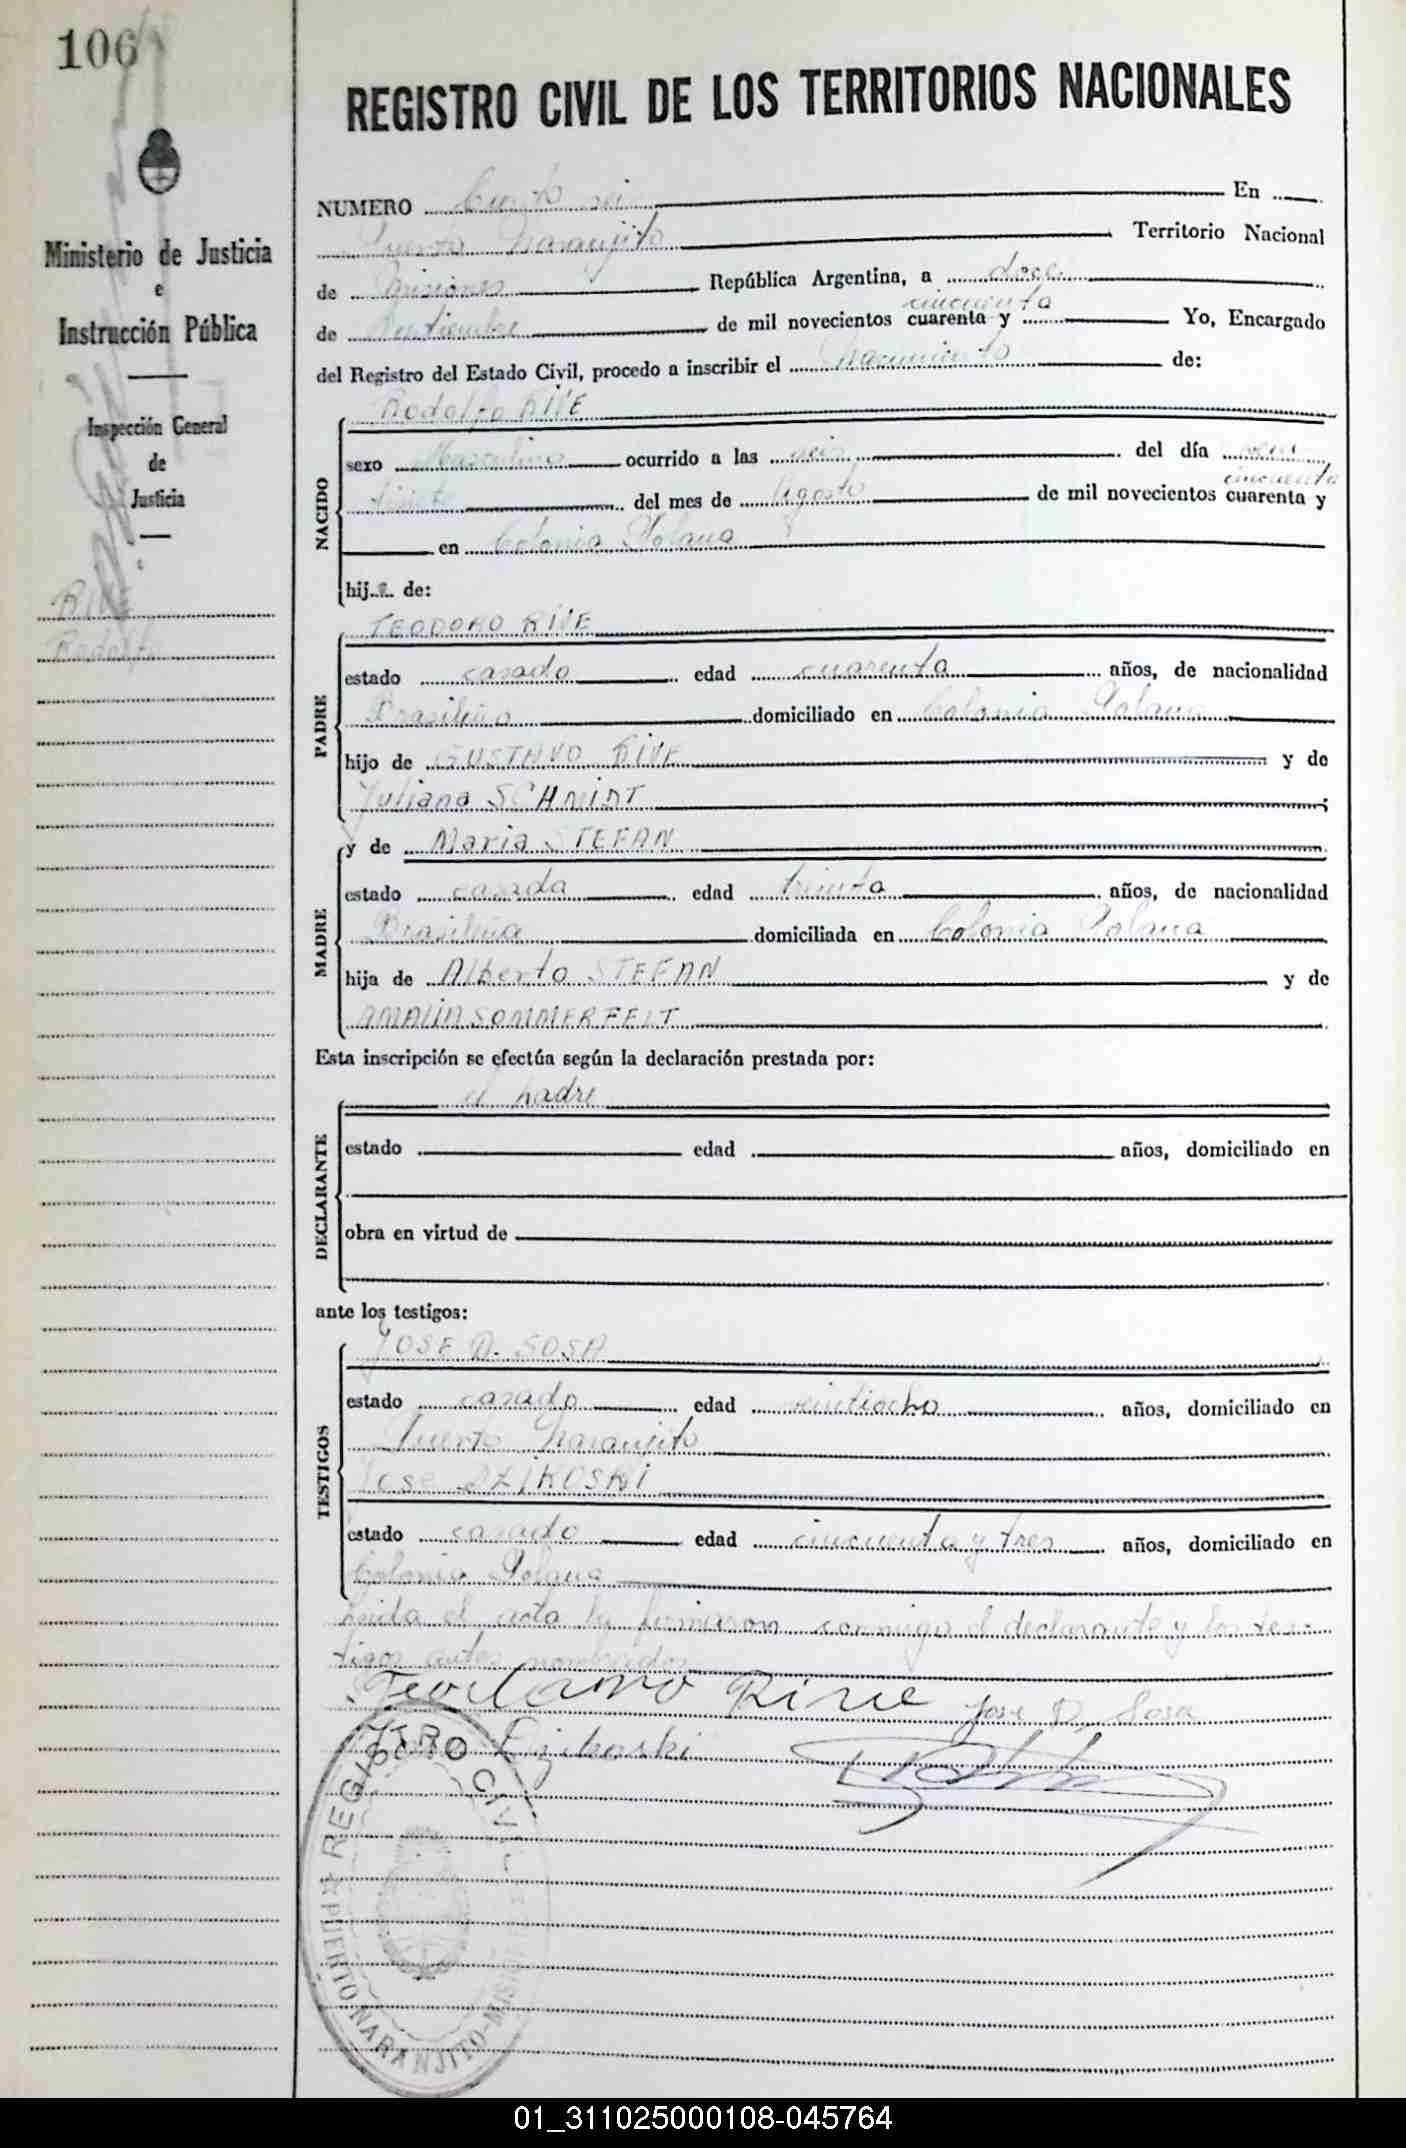 106
Ministerio de Justicia
e
Instrucción Pública
Inspección General
de
Justicia
RIVE
Rodolfo
REGISTRO CIVIL DE LOS TERRITORIOS NACIONALES
NUMERO Ciento seis En
Puerto Naranjito Territorio Nacional
de Misiones República Argentina, a doce
de Septiembre de mil novecientos cuarenta y cincuenta Yo, Encargado
del Registro del Estado Civil, procedo a inscribir el nacimiento de:
NACIDO
Rodolfo RIVE
sexo Masculino ocurrido a las seis del día
del mes de Agosto de mil novecientos cuarenta y cincuenta
en Colonia Polana
hijo de:
PADRE
TEODORO RIVE
estado casado edad cuarenta años, de nacionalidad
Brasileña domiciliado en Colonia Polana
hijo de GUSTAVO RIVE y de
Juliana SCHMIDT ;
MADRE
y de Maria STEFAN
estado casada edad treinta años, de nacionalidad
Brasileña domiciliada en Colonia Polana
hija de Alberto STEFAN y de
AMALIA SOMMERFELT
Esta inscripción se efectúa según la declaración prestada por:
DECLARANTE
el padre
estado edad años, domiciliado en
obra en virtud de
ante los testigos:
TESTIGOS
JOSE D. SOSA
estado casado edad veintiocho años, domiciliado en
Puerto Naranjito
Jose DZIKOSKI
estado casado edad cincuenta y tres años, domiciliado en
Colonia Polana
Leida el acta la firmaron conmigo el declarante y los tes-
tigos antes nombrados
Rive Jose D. Sosa
REGISTRO CIVIL
PUERTO NARANJITO - MISIONES
01_311025000108-045764